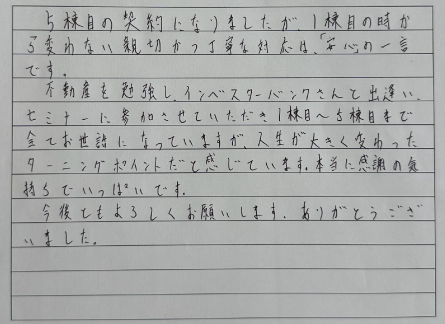 5棟目の契約になりましたが、1棟目の時か
ら変わない親切かつ丁寧な対応は、「安心」の一言
です。
不動産を勉強し、インベスターバンクさんと出逢い、
セミナーに参加させていただき1棟目〜5棟目まで
全てお世話になっていますが、人生が大きく変わった
ターニングポイントだと感じています。本当に感謝の気
持ちでいっぱいです。
今後ともよろしくお願いします。ありがとうござ
いました。